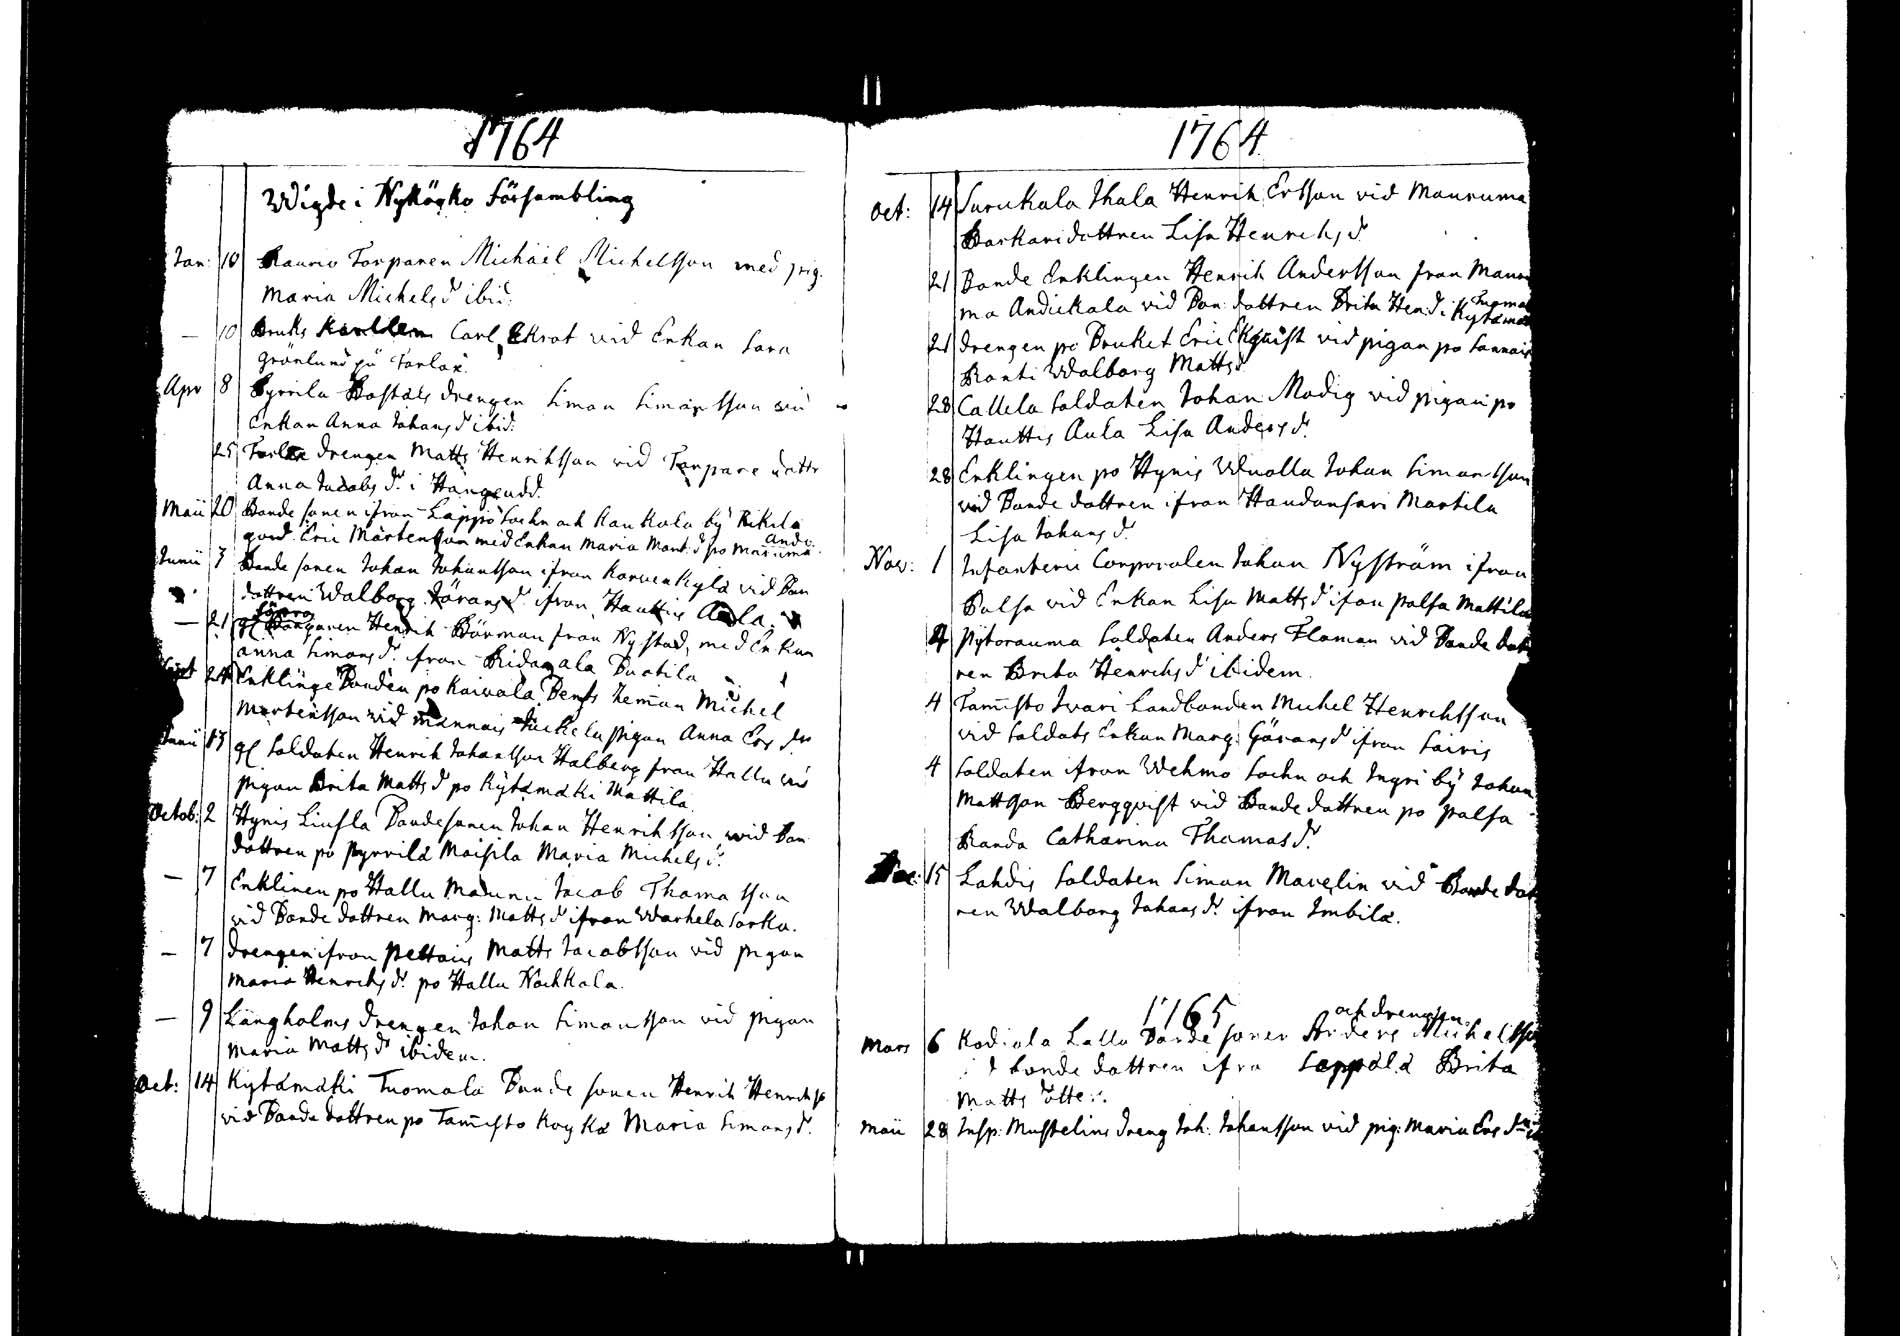 1764
Wigde i Nykögko Försambling
Jan: 10 Raurio Torparen Michäel Michelsson med pig.
Maria Michels dr ibid:
— 10 Bruks Carl Ekrot vid Enkan Sara
Grönlund på Torlax.
Apr 8 Pyrrila Bostäls drengen Simon Simonsson vid
Enkan Anna Johans dr ibid:
25 drengen Matts Henriksson vid Torpare dottr
Anna Jacobs dr. i Hangeudd.
Maii 20 Bonde sonen ifron Lappo Sochn och Kaukola bÿ Rikila
gord Eric Mårtensson med Enkan Maria Mart: dr po Andi
Junii 3 Bonde sonen Johan Johansson ifron Korvenkylä vid Bon
dottren Walborg Jörans dr ifron Hauttis Aula.
— 21 gl Borgaren Henrik Börman fron Nystad, med Enkan
Anna Simons dr. ifron Ridagala Puotila
Sept 24 Enklinge Bonden po Kaivola Bents hemman Michel
Mortensson vid Mannais pigan Anna Ers dr
Junii 13 gl Soldaten Henrik Johansson Halberg fron Hallu vid
pigan Brita Matts dr po Kÿtämäki Mattila.
Octob: 2 Hynis Liusla Bondesonen Johan Henriksson vid Bon
dottren po Pyrrilä Maisila Maria Michels dr.
— 7 Enklinen po Hallu Jacob Thomasson
vid Bonde dottren Marg: Matts dr ifron Warhela Sorka.
— 7 drengen ifron Pettais Matts Jacobsson vid pigan
Maria Henrichs dr. po Hallu Nochkola.
— 9 Långholms drengen Johan Simonsson vid pigan
Maria Matts dr ibidem.
Oct: 14 Kytämäki Tuomola Bonde sonen Henrik Henrichs
vid Bonde dottren po Tam̄isto Koyka Maria Simons dr.
1764
Oct: 14 Surukala Ihala Henrik Ersson vid Mauruma
Barkari dottren Lisa Henrichs dr
21 Bonde Enklingen Henrik Andersson fron Mauru
ma Andickala vid Bon: dottren Brita Hen: dr. Kytämä Tuomol
21 drengen po Bruket Eric Ekquist vid pigan po Sannais
Ranti Walborg Matts dr
28 Callela Soldaten Johan Modig vid pigan po
Hauttis Aula Lisa Anders dr.
28 Enklingen po Hynis Wuolla Johan Simonsson
vid Bonde dottren ifron Haudonsari Martila
Lisa Johans dr.
Nov: 1 Infanterie Corporalen Johan Nyström ifron
Palsa vid Enkan Lisa Matts dr ifon Palsa Mattila
4 Pÿtorauma Soldaten Anders Flaman vid Bonde dott
ren Brita Henrichs dr ibidem.
4 Tam̄isto Ivari Landbonden Michel Henrichsson
vid Soldats Enkan Marg: Görans dr ifron Sairis
4 Soldaten ifron Wehmo Sochn och Ingri bÿ Johan
Mattsson Bergqvist vid Bonde dottren po Palsa
Randa Catharina Thomas dr.
15 Lahdis Soldaten Simon Mavelin vid Bonde dot
ren Walborg Johans dr. ifron Imbilä.
1765
och drengen
Mars 6 Kodiola Lalla Bonde sonen Anders Michelsson
bonde dottren ifro Seppälä Brita
Matts dotter.
Maii 28 Insp: Mustelins dreng Joh: Johansson vid pig: Maria Ers dr